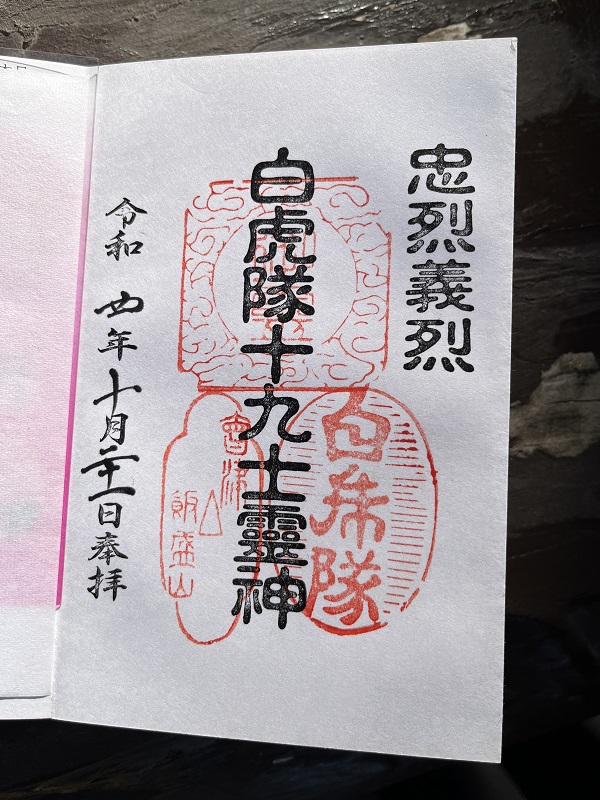 忠烈義烈
白虎隊十九士靈神
白虎隊
會津
飯盛山
令和四年十月二十一日奉拝